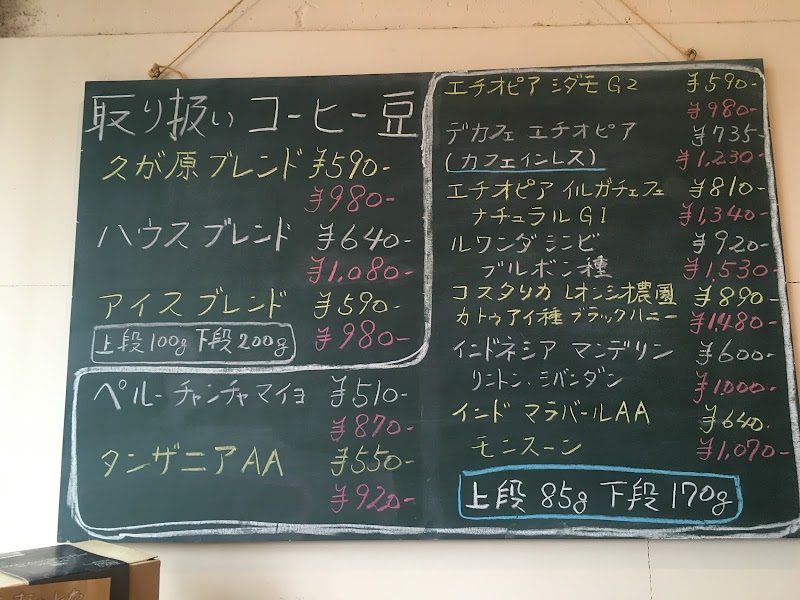 取り扱い コーヒー豆
久が原ブレンド ¥590-
¥980-
ハウス ブレンド ¥640-
¥1,080-
アイス ブレンド ¥590-
上段100g 下段200g ¥980-
ペルー チャンチャマイョ ¥510-
¥870-
タンザニアAA ¥550-
¥920-
エチオピア シダモ G2 ¥590-
¥980-
デカフェ エチオピア ¥735-
(カフェインレス) ¥1,230-
エチオピア イルガチェフェ ¥810-
ナチュラル G1 ¥1,340-
ルワンダ シンビ ¥920-
ブルボン種 ¥1,530-
コスタリカ レオンシオ農園 ¥890-
カトゥアイ種 ブラックハニー ¥1,480-
インドネシア マンデリン ¥600-
リントン・シバンダン ¥1,000-
インド マラバールAA ¥640-
モンスーン ¥1,070-
上段 85g 下段 170g